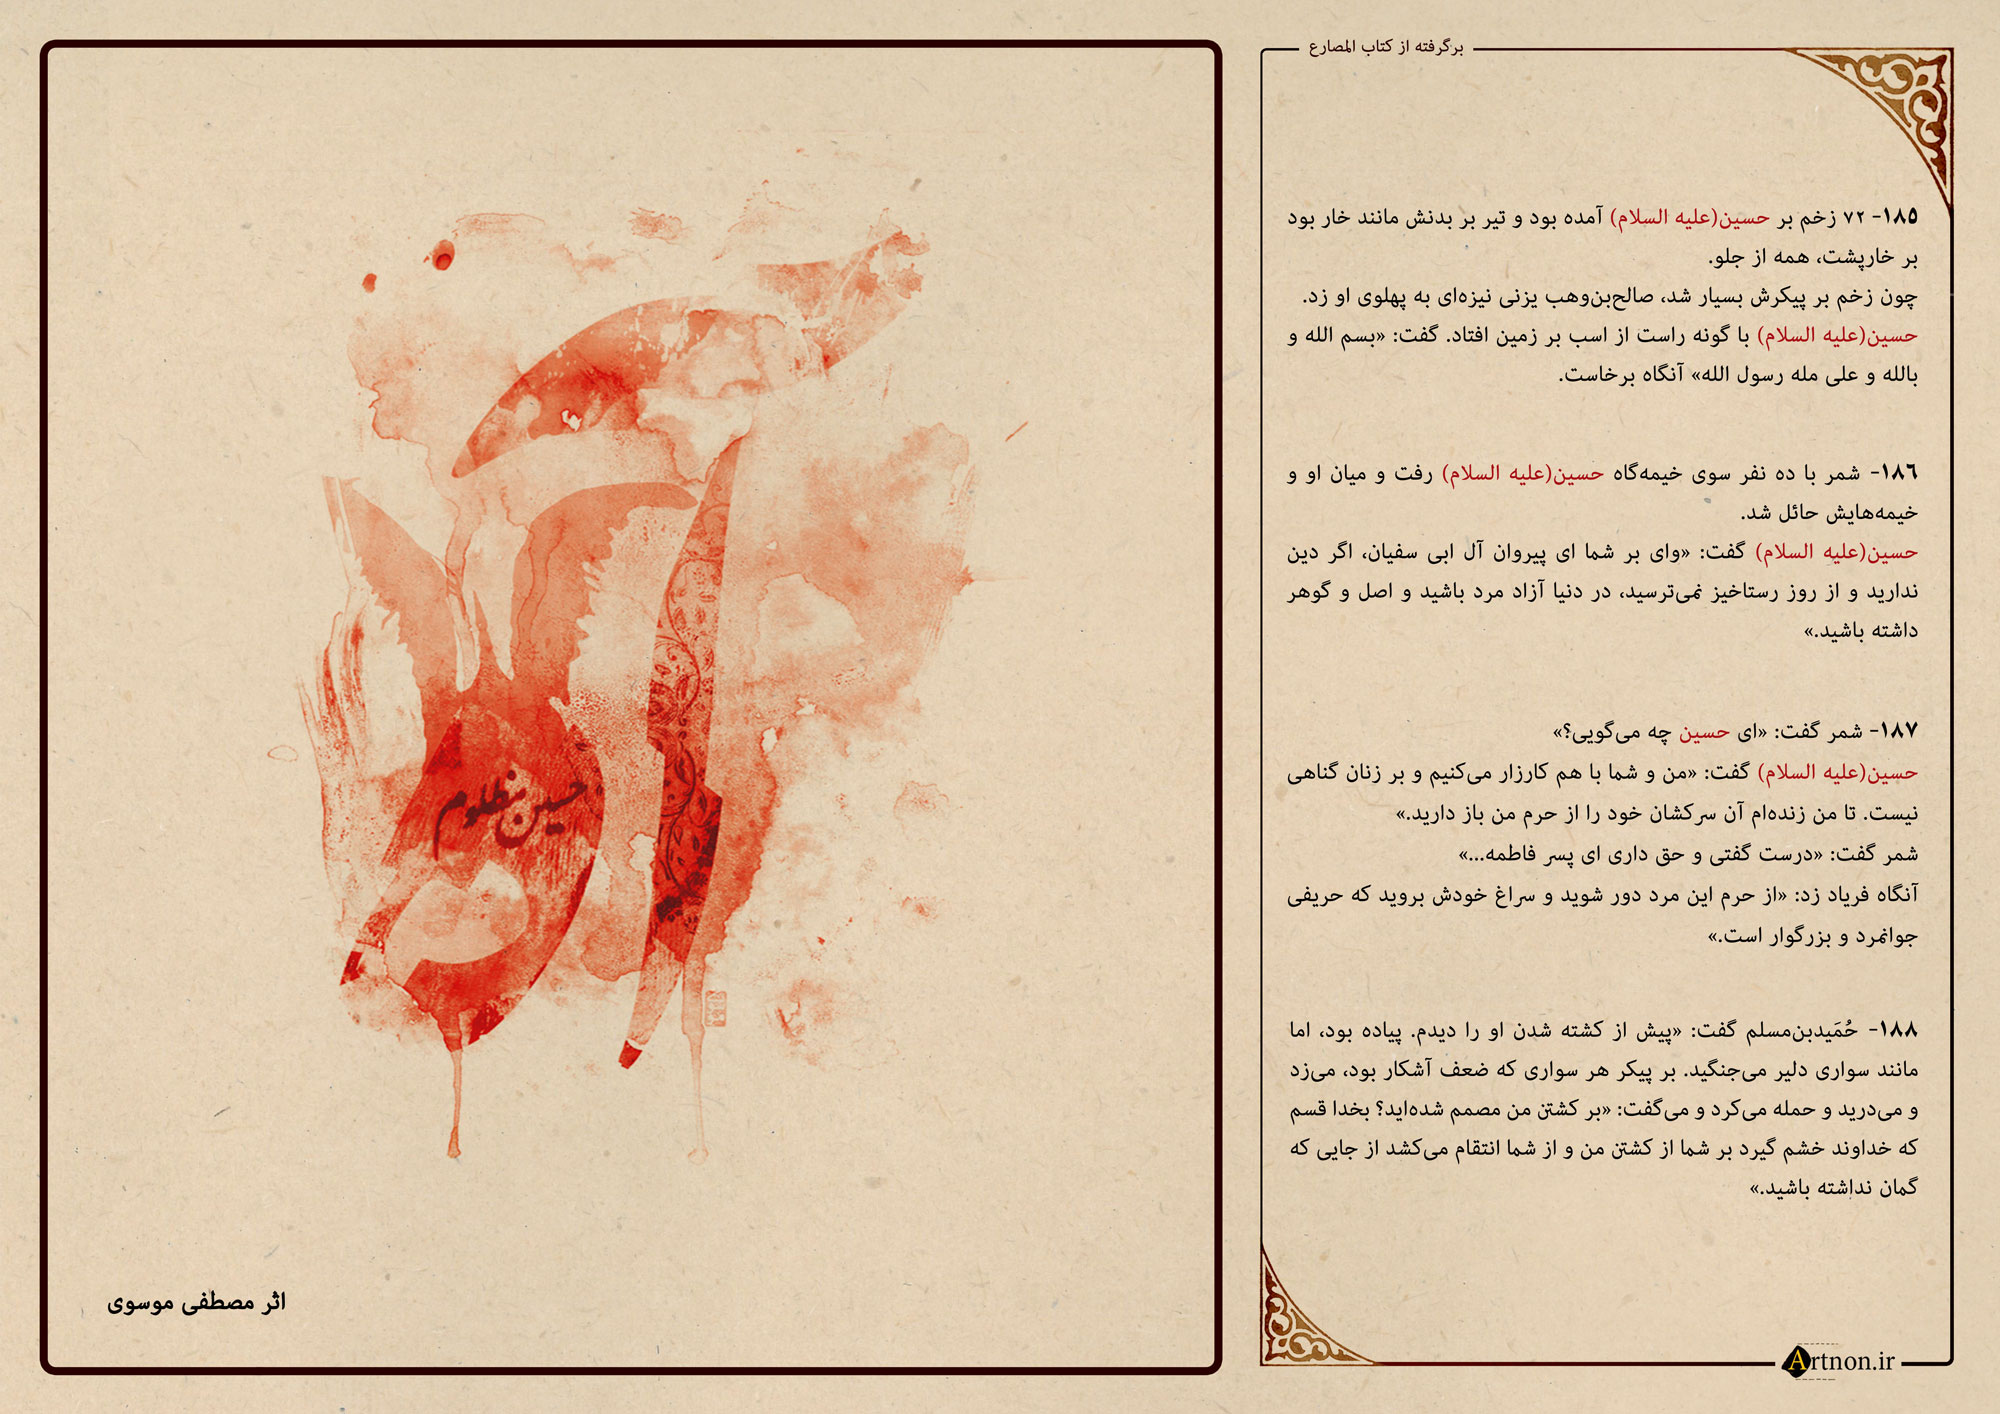 برگرفته از کتاب المصارع
۱۸۵- ۷۲ زخم بر حسین(علیه السلام) آمده بود و تیر بر بدنش مانند خار بود
بر خارپشت، همه از جلو.
چون زخم بر پیکرش بسیار شد، صالح‌بن‌وهب یزنی نیزه‌ای به پهلوی او زد.
حسین(علیه السلام) با گونه راست از اسب بر زمین افتاد. گفت: «بسم الله و
بالله و علی مله رسول الله» آنگاه برخاست.
۱۸۶- شمر با ده نفر سوی خیمه‌گاه حسین(علیه السلام) رفت و میان او و
خیمه‌هایش حائل شد.
حسین(علیه السلام) گفت: «وای بر شما ای پیروان آل ابی سفیان، اگر دین
ندارید و از روز رستاخیز نمی‌ترسید، در دنیا آزاد مرد باشید و اصل و گوهر
داشته باشید.»
۱۸۷- شمر گفت: «ای حسین چه می‌گویی؟»
حسین(علیه السلام) گفت: «من و شما با هم کارزار می‌کنیم و بر زنان گناهی
نیست. تا من زنده‌ام آن سرکشان خود را از حرم من باز دارید.»
شمر گفت: «درست گفتی و حق داری ای پسر فاطمه...»
آنگاه فریاد زد: «از حرم این مرد دور شوید و سراغ خودش بروید که حریفی
جوانمرد و بزرگوار است.»
۱۸۸- حُمَیدبن‌مسلم گفت: «پیش از کشته شدن او را دیدم. پیاده بود، اما
مانند سواری دلیر می‌جنگید. بر پیکر هر سواری که ضعف آشکار بود، می‌زد
و می‌درید و حمله می‌کرد و می‌گفت: «بر کشتن من مصمم شده‌اید؟ بخدا قسم
که خداوند خشم گیرد بر شما از کشتن من و از شما انتقام می‌کشد از جایی که
گمان نداشته باشید.»
Artnon.ir
حسین مظلوم
اثر مصطفی موسوی